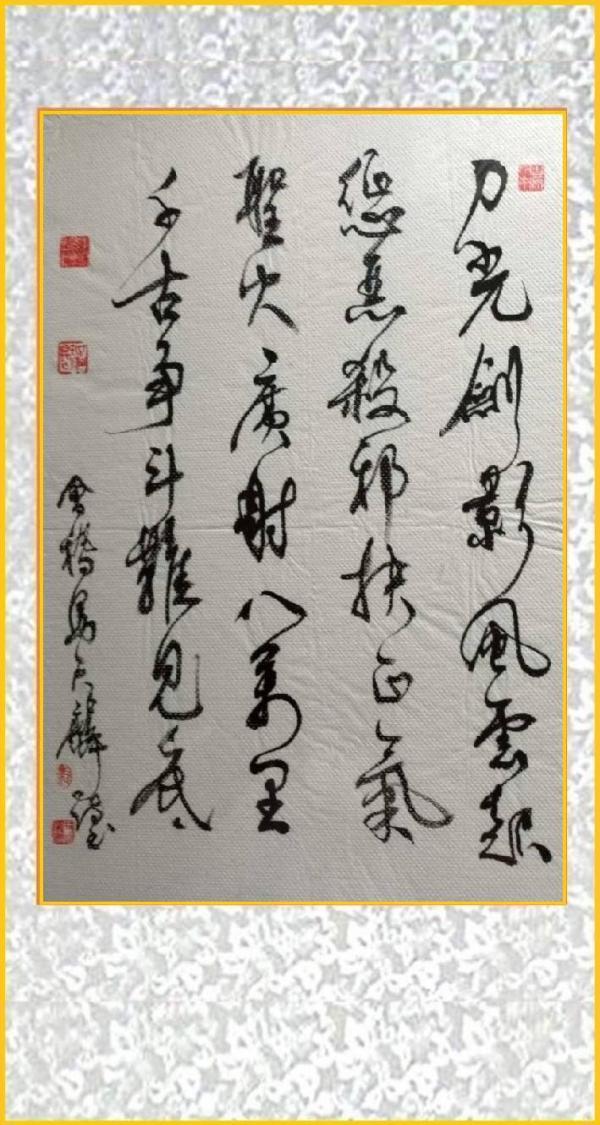 刀光劍影風雲起
懲惡殺邪扶正氣
聖火廣射八萬里
千古爭斗難見底
會橋馬天麟